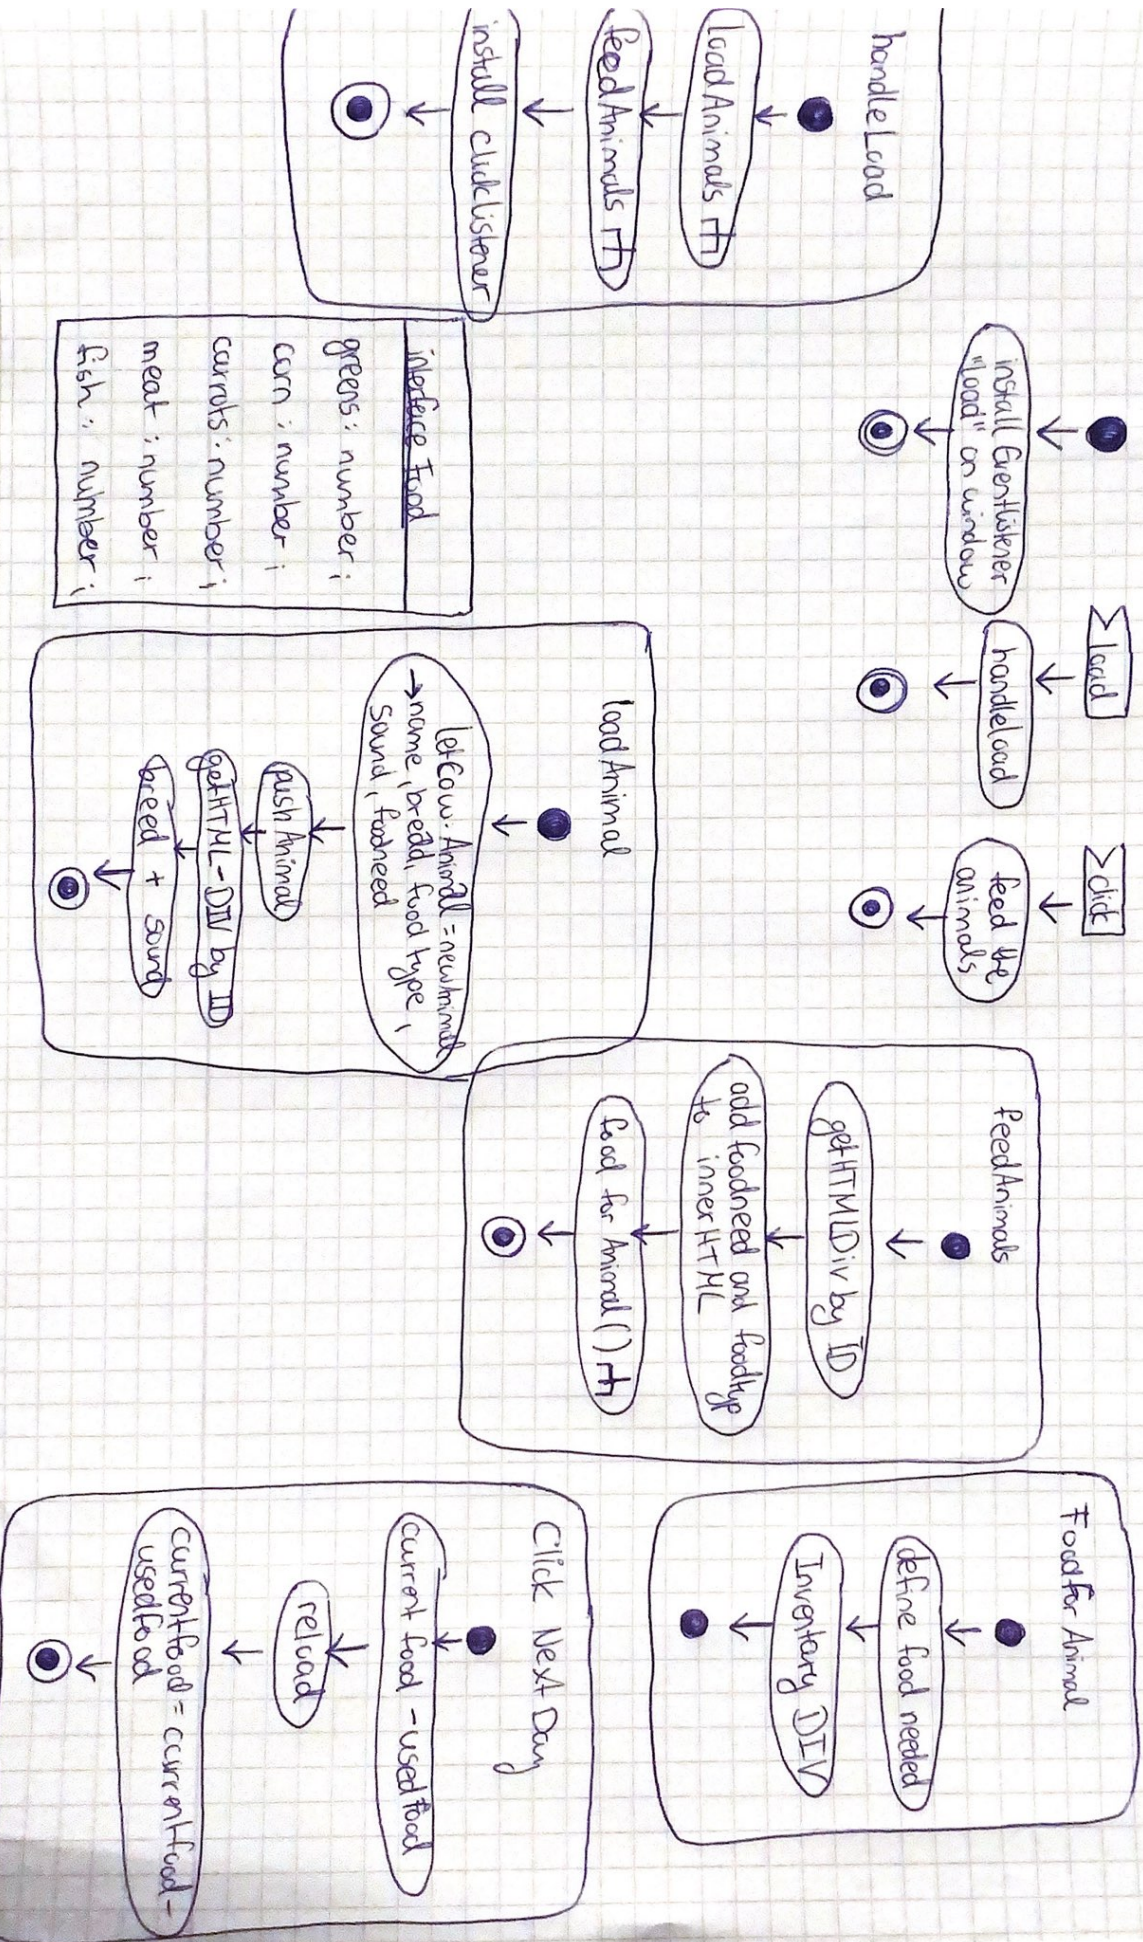 handleLoad
loadAnimals
feedAnimals
install clicklistener
install Eventlistener
"load" on window
load
handleload
click
feed the
animals
interface Food
greens : number ;
corn : number ;
carrots : number ;
meat : number ;
fish : number ;
loadAnimal
let Cow: Animal = newAnimal
→ name, breed, food type,
sound, foodneed
push Animal
getHTML-DIV by ID
breed + sound
feedAnimals
getHTMLDiv by ID
add foodneed and foodtyp
to innerHTML
food for Animal()
Food for Animal
define food needed
Inventary DIV
Click Next Day
current food - used food
reload
currentfood = currentfood -
usedfood